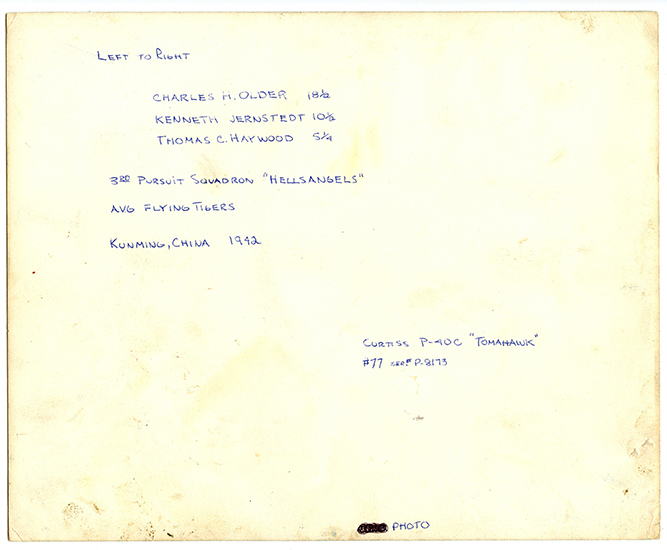 LEFT TO RIGHT
CHARLES H. OLDER 18½
KENNETH JERNSTEDT 10½
THOMAS C. HAYWOOD 5¼
3RD PURSUIT SQUADRON "HELLSANGELS"
AVG FLYING TIGERS
KUNMING, CHINA 1942
CURTISS P-40C "TOMAHAWK"
#77 SER.# P-8173
PHOTO